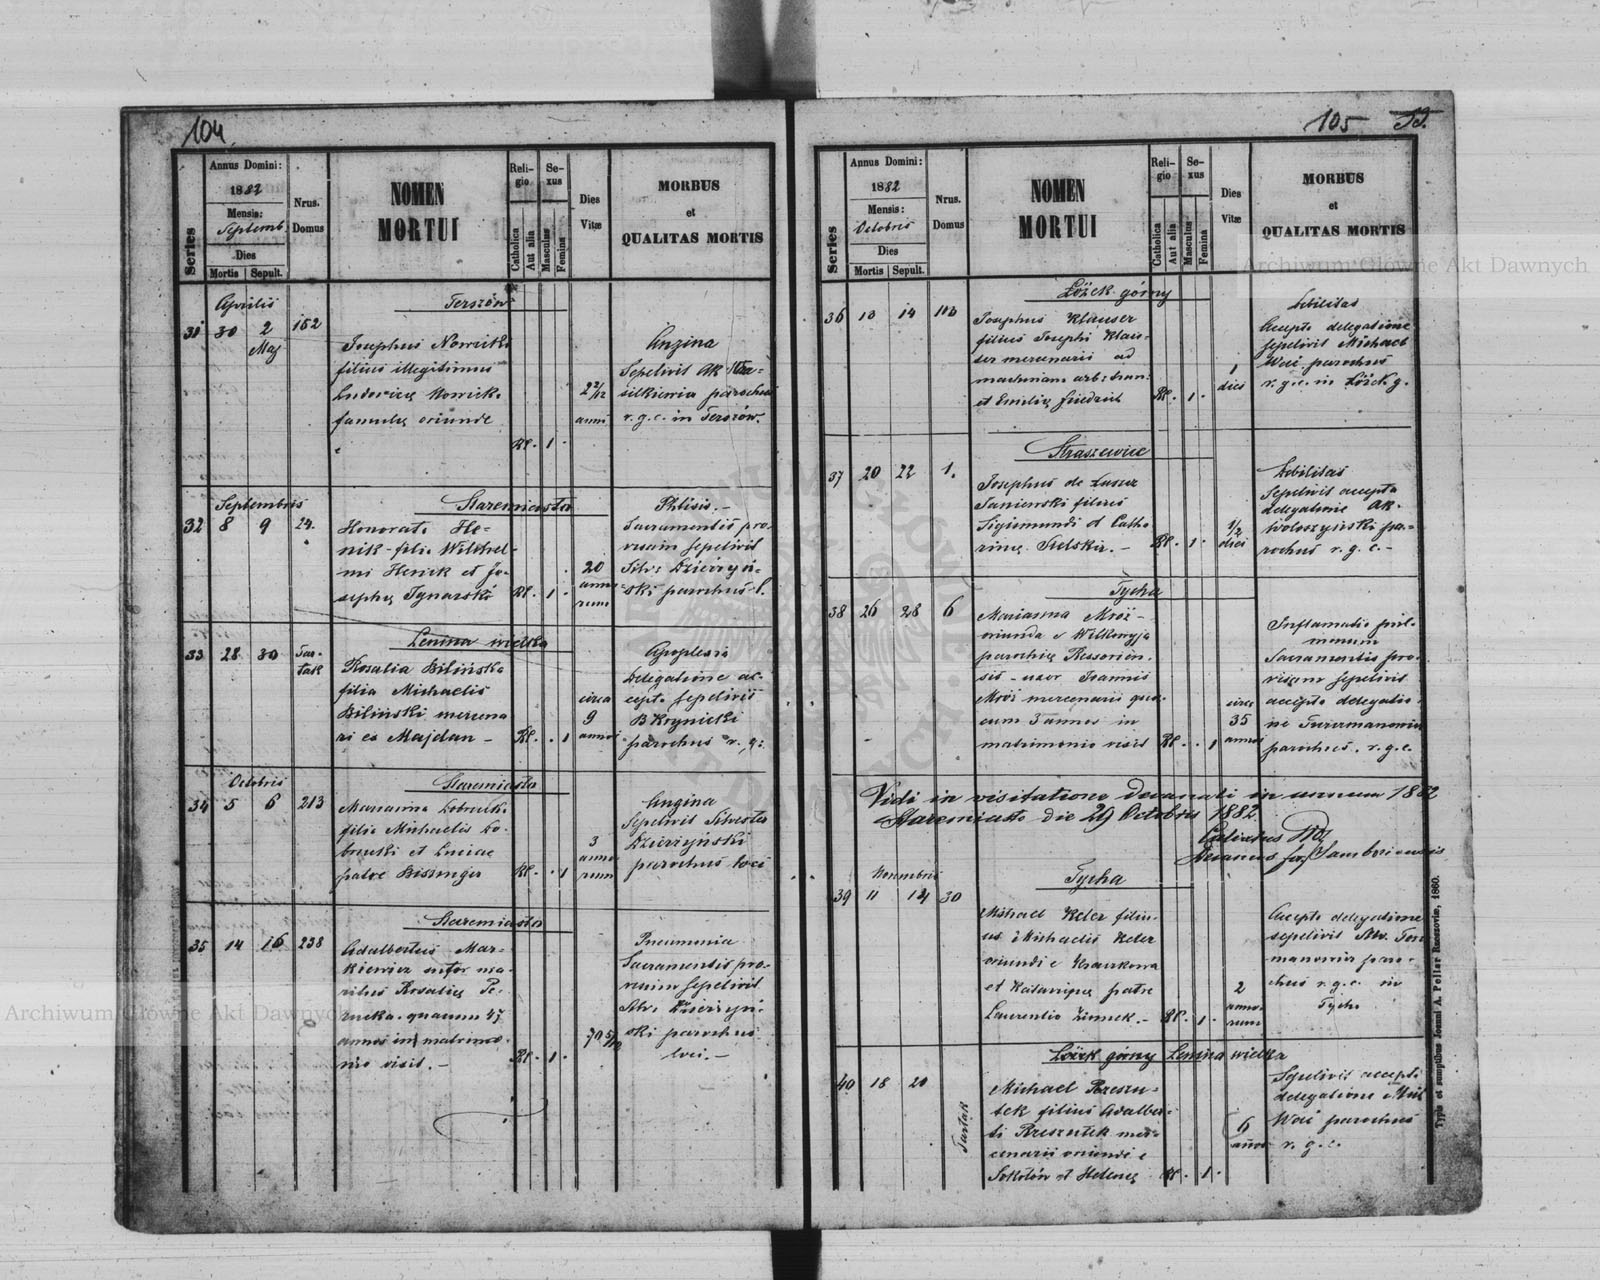 104.
Annus Domini:
1882
Mensis:
Septemb
Dies
Mortis Sepult.
Series
Nrus. Domus
NOMEN MORTUI
Religio
Catholica
Aut alia
Sexus
Masculus
Femina
Dies Vitæ
MORBUS
et
QUALITAS MORTIS
Aprilis
Terszów
31 30 2 Maj 152
Josephus Nowicki
filius illegitimus
Ludovicæ Nowick.
famulæ oriunde
Rl. 1
2 2/12 anni
Anzina
Sepelivit AK Wa=
silkiewicz parochus
r. g. c. in Terszów.
Septembris
Staremiasto
32 8 9 24.
Honorata He=
nik filia Wilhel=
mi Henik et Jo=
sephæ Ignarski
Rl. 1.
20 anno rum
Phtisis. -
Sacramentis pro=
visam sepelivit
Silv: Dzierzyń=
ski parochus l.
Lenina wielka
33 28 30 Tartak
Rosalia Bilińska
filia Michaelis
Biliński mercena
ri ex Majdan -
Rl. 1
circa 9 anni
Apoplexia
Delegatione ac=
cepta sepelivit
B Krynicki
parochus r. g:
Octobris
Staremiasto
34 5 6 213
Marianna Dobrucka
filia Michaelis Do=
brucki et Luciae
patre Bissinger
Rl. 1
3 anno rum
Angina
Sepelivit Silvester
Dzierzyński
parochus loci
Staremiasto
35 14 16 238
Adalbertus Mar=
kiewicz sutor ma=
ritus Rosaliæ Pe=
rucka. quacum 47
annos in matrimo=
nio vixit. -
Rl. 1.
70 5/12
Pneumonia
Sacramentis pro=
visum sepelivit
Silv: Dzierzyń=
ski parochus
loci. -
105
53.
Annus Domini:
1882
Mensis:
Octobris
Dies
Mortis Sepult.
Series
Nrus. Domus
NOMEN MORTUI
Religio
Catholica
Aut alia
Sexus
Masculus
Femina
Dies Vitæ
MORBUS
et
QUALITAS MORTIS
Łózek górny
36 13 14
Josephus Klauser
filius Josephi Klau=
ser mercenarii ad
machinam arb: tran:
et Emiliæ Friedrich
Rl. 1.
1 diei
Debilitas
Accepta delegatione
sepelivit Michael
Woi parochus
r. g. c. in Łózek g.
Straszewice
37 20 22 1.
Josephus de
Janiewski filius
Sigismundi et Catha
rinæ Sielskie. -
Rl. 1.
1/2 diei
Debilitas
Sepelivit accepta
delegatione AK.
Woloszyński pa=
rochus r. g. c. -
Tycha
38 26 28 6
Marianna Mróz -
oriunda e Wilkowyja
parochiæ Ressovien.
sis - uxor Joannis
Mróz mercenarii qua
cum 3 annos in
matrimonio vixit
Rl. 1
circa 35 annos
Inflamatio pul=
monum
Sacramentis pro=
visam sepelivit
accepta delegatio
ne
parochus. r. g. c.
Vidi in visitatione decanali in annum 1882
Staremiasto die 29 Octobris 1882
Decanus for. Samboriensis
Novembris
Tycha
39 11 12 30
Michael Keler filiu=
us Michaelis Keler
oriundi e Krakowa
et Katarinæ patre
Laurentio Zimek. -
Rl. 1.
2 anno rum
Accepta delegatione
sepelivit
paro=
chus r. g. c. in
Tycha
Łózek górny Lenina wielka
40 18 20 Tartak
Michael Rzeszu=
tek filius Adalber=
ti Rzeszutek mer=
cenarii oriundi e
Sokołów et Helenæ
Rl. 1.
6 annos
Sepelivit accepta
delegatione Mich
Woi parochus
r. g. c.
Typis et sumptibus Joanni A. Pellar Rzeszoviæ, 1860.
Archiwum Główne Akt Dawnych
Archiwum Główne Akt Dawnych